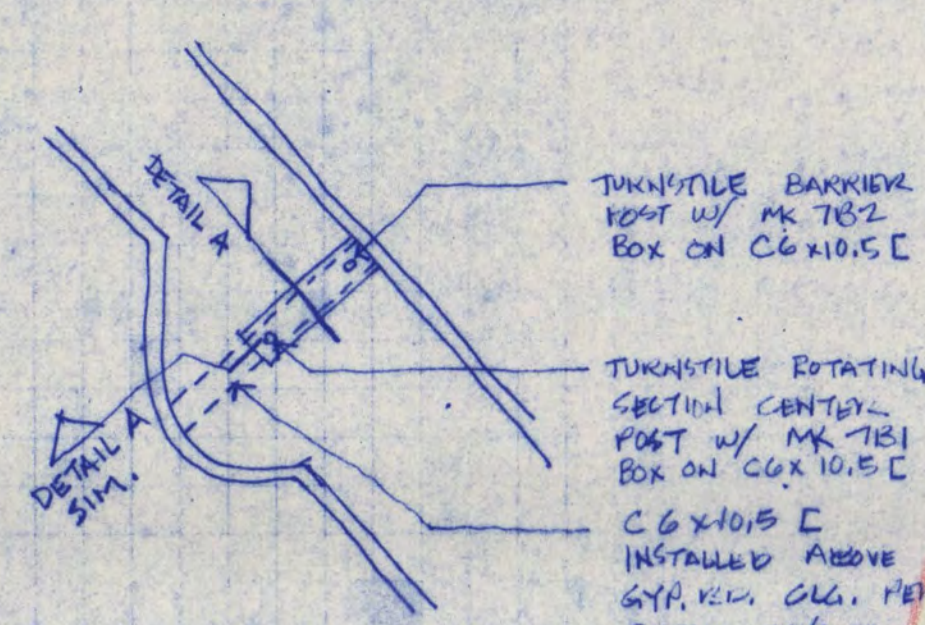 DETAIL A
TURNSTILE BARRIER
POST W/ MK 7B2
BOX ON C6 x10.5 [
TURNSTILE ROTATING
SECTION CENTER
POST W/ MK 7B1
BOX ON C6 x 10.5 [
DETAIL A
SIM.
C 6 x10.5 [
INSTALLED ABOVE
GYP. BD. CLG. PER